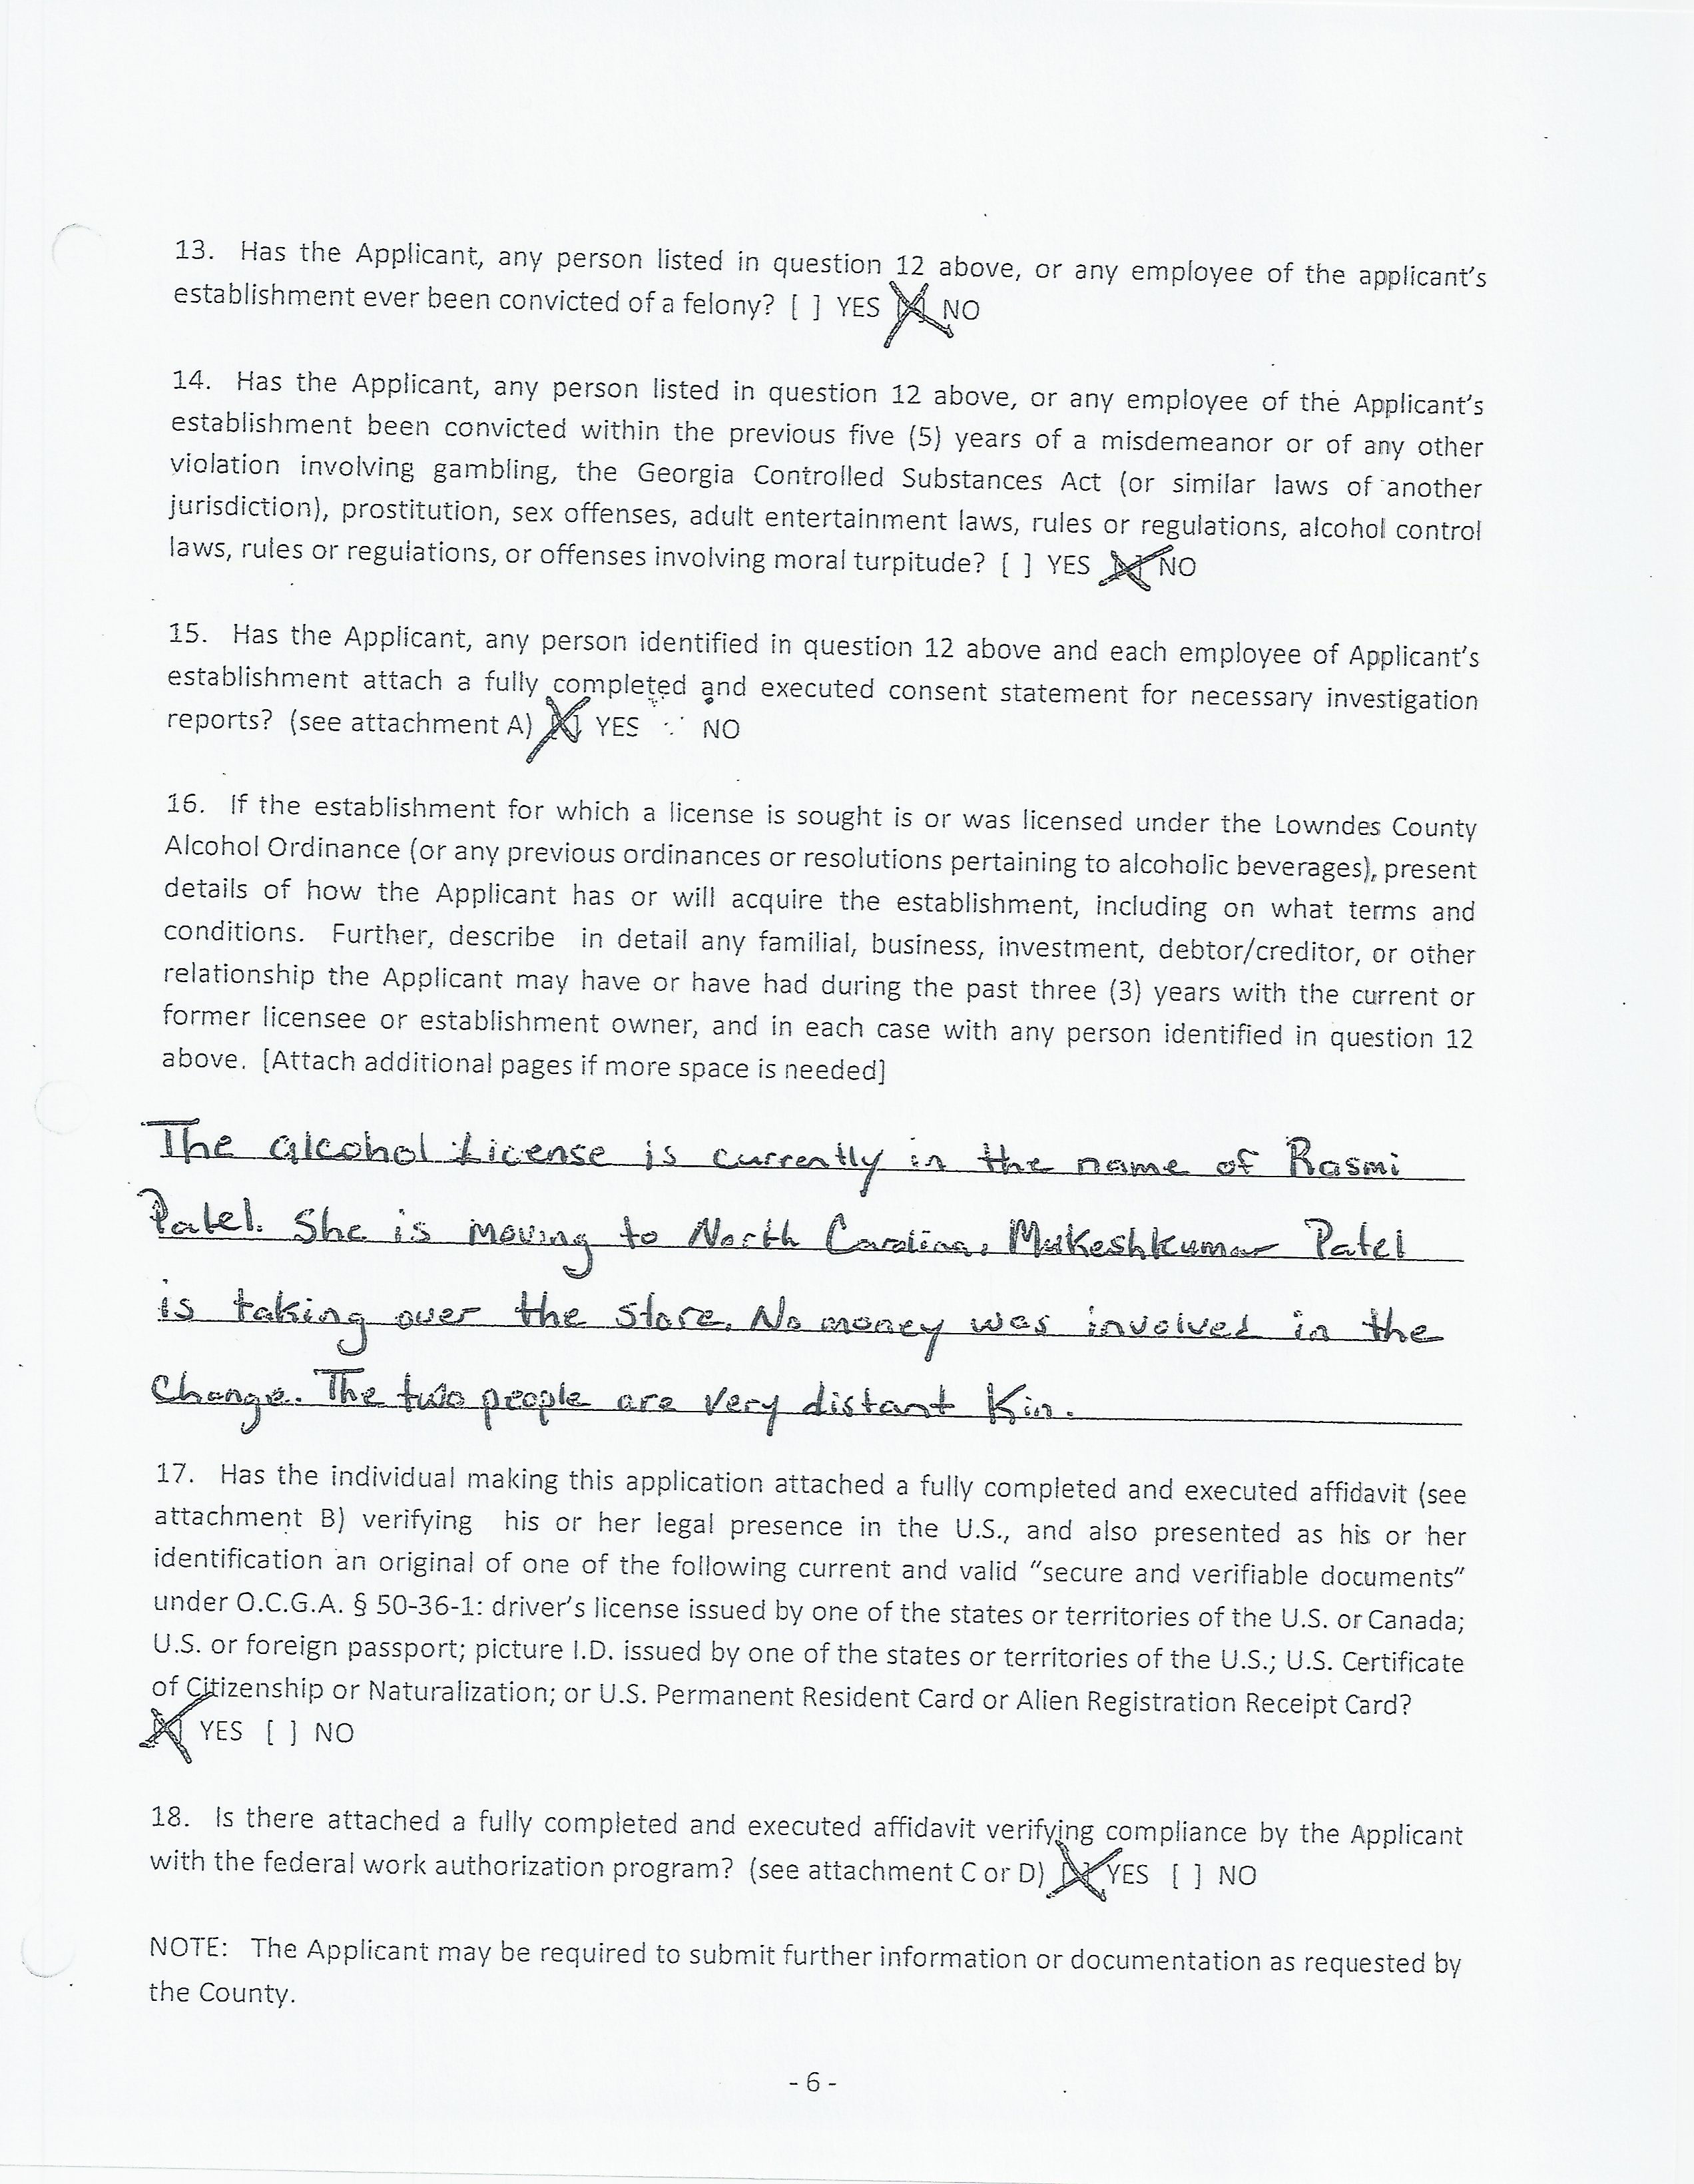 13. Has the Applicant, any person listed in question 12 above, or any employee of the applicant's
establishment ever been convicted of a felony? [ ] YES [X] NO
14. Has the Applicant, any person listed in question 12 above, or any employee of the Applicant's
establishment been convicted within the previous five (5) years of a misdemeanor or of any other
violation involving gambling, the Georgia Controlled Substances Act (or similar laws of another
jurisdiction), prostitution, sex offenses, adult entertainment laws, rules or regulations, alcohol control
laws, rules or regulations, or offenses involving moral turpitude? [ ] YES [X] NO
15. Has the Applicant, any person identified in question 12 above and each employee of Applicant's
establishment attach a fully completed and executed consent statement for necessary investigation
reports? (see attachment A) [X] YES NO
16. If the establishment for which a license is sought is or was licensed under the Lowndes County
Alcohol Ordinance (or any previous ordinances or resolutions pertaining to alcoholic beverages), present
details of how the Applicant has or will acquire the establishment, including on what terms and
conditions. Further, describe in detail any familial, business, investment, debtor/creditor, or other
relationship the Applicant may have or have had during the past three (3) years with the current or
former licensee or establishment owner, and in each case with any person identified in question 12
above. [Attach additional pages if more space is needed]
The alcohol License is currently in the name of Rasmi
Patel. She is moving to North Carolina. Mukeshkumar Patel
is taking over the store. No money was involved in the
Change. The two people are very distant Kin.
17. Has the individual making this application attached a fully completed and executed affidavit (see
attachment B) verifying his or her legal presence in the U.S., and also presented as his or her
identification an original of one of the following current and valid "secure and verifiable documents"
under O.C.G.A. § 50-36-1: driver's license issued by one of the states or territories of the U.S. or Canada;
U.S. or foreign passport; picture I.D. issued by one of the states or territories of the U.S.; U.S. Certificate
of Citizenship or Naturalization; or U.S. Permanent Resident Card or Alien Registration Receipt Card?
[X] YES [ ] NO
18. Is there attached a fully completed and executed affidavit verifying compliance by the Applicant
with the federal work authorization program? (see attachment C or D) [X] YES [ ] NO
NOTE: The Applicant may be required to submit further information or documentation as requested by
the County.
- 6 -